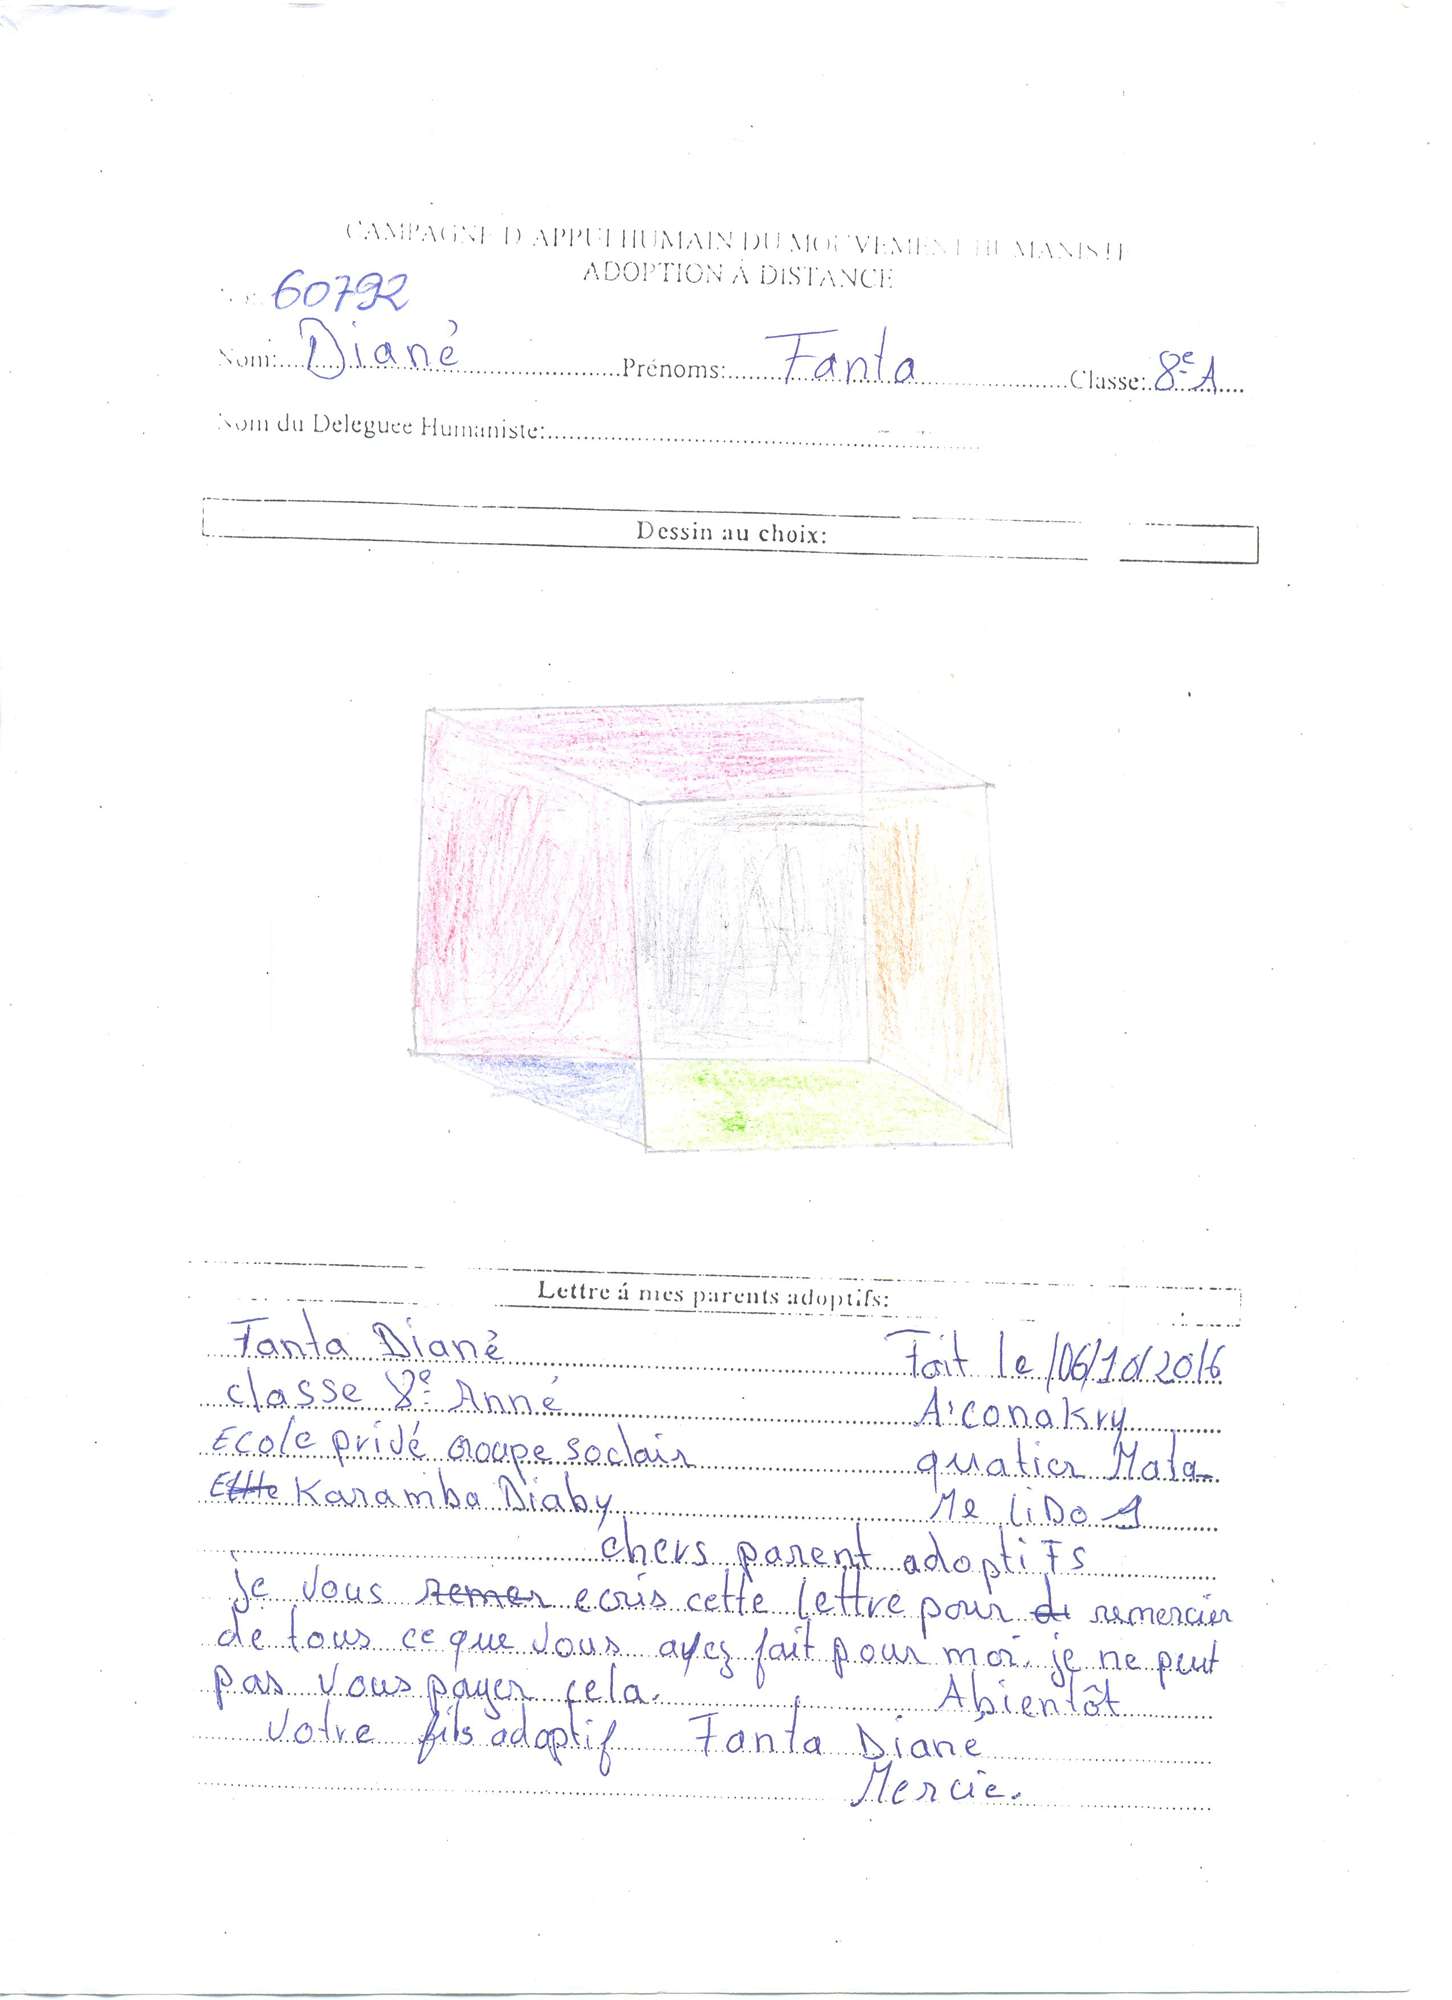 CAMPAGNE D'APPUI HUMAIN DU MOUVEMENT HUMANISTE
ADOPTION Á DISTANCE
60792
Nom: Diané Prénoms: Fanta Classe: 8e A
Nom du Deleguee Humaniste:
Dessin au choix:
Lettre á mes parents adoptifs:
Fanta Diané Fait le 06/10/2016
classe 8e Anné A'conakry
Ecole privé Groupe soclair quatier Mata
Karamba Diaby Me liDo 1
chers parent adoptiFs
je vous ecris cette lettre pour remercier
de tous ce que vous ayez fait pour moi. je ne peut
pas vous payer cela. Abientôt
votre fils adoptif Fanta Diané
Mercie.